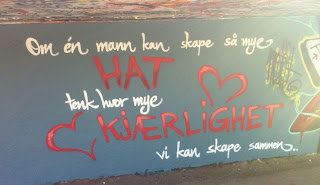 Om én mann kan skape så mye
HAT
tenk hvor mye
KJÆRLIGHET
vi kan skape sammen..